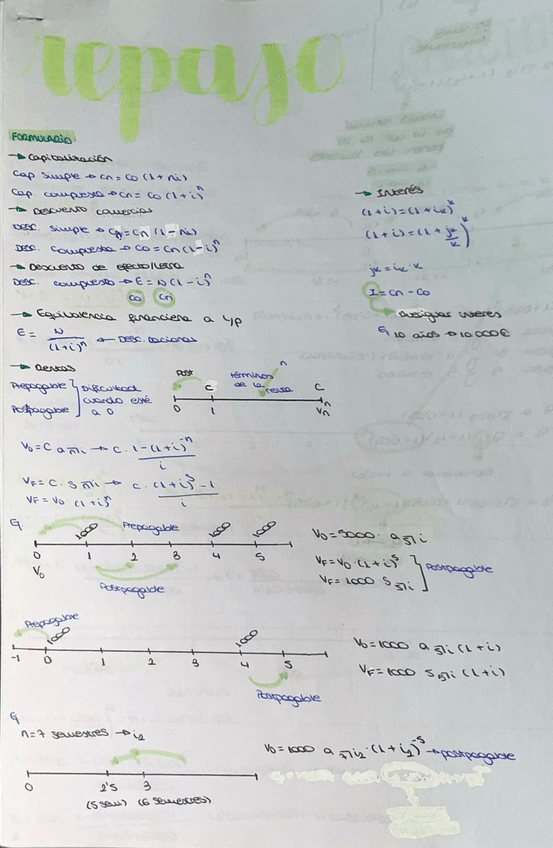 repaso
FORMULARIO
→ Capitalización
Cap. simple → Cn = Co (1 + ni)
Cap. compuesta → Cn = Co (1 + i)^n
→ Descuento comercial
Desc. simple → Co = Cn (1 - ni)
Desc. compuesto → Co = Cn (1 - i)^n
→ Descuento de efecto/letra
Desc. compuesto → E = N (1 - i)^n
Co Cn
→ Equivalencia financiera a L/p
E = N / (1+i)^n ← Desc. racional
→ Interés
(1+i) = (1+ik)^k
(1+i) = (1 + jk/k)^k
jk = ik · k
I = Cn - Co
→ Desglosar interes
Ej 10 años → 10.000€
→ Rentas
Prepagable
Pospagable
] Dificultad cuando esté a 0
Post C términos de la renta n C
0 1 n
Vn
Vo = C a n|i → C · 1-(1+i)^-n / i
VF = C · S n|i → C · (1+i)^5 - 1 / i
VF = Vo (1+i)^n
Ej
1000 Prepagable 1000 1000
0 1 2 3 4 5
Vo
Postpagable
Vo = 5000 · a 5|i
VF = Vo · (1+i)^5
VF = 1000 S 5|i
] Postpagable
Prepagable
1000 1000
-1 0 1 2 3 4 5
Postpagable
Vo = 1000 a 5|i (1+i)
VF = 1000 S 5|i (1+i)
Ej
n = 7 semestres → i2
Vo = 1000 a 7|i2 · (1+i2)^-5 → postpagable
0 2'5 3
(5 sem) (6 semestres)